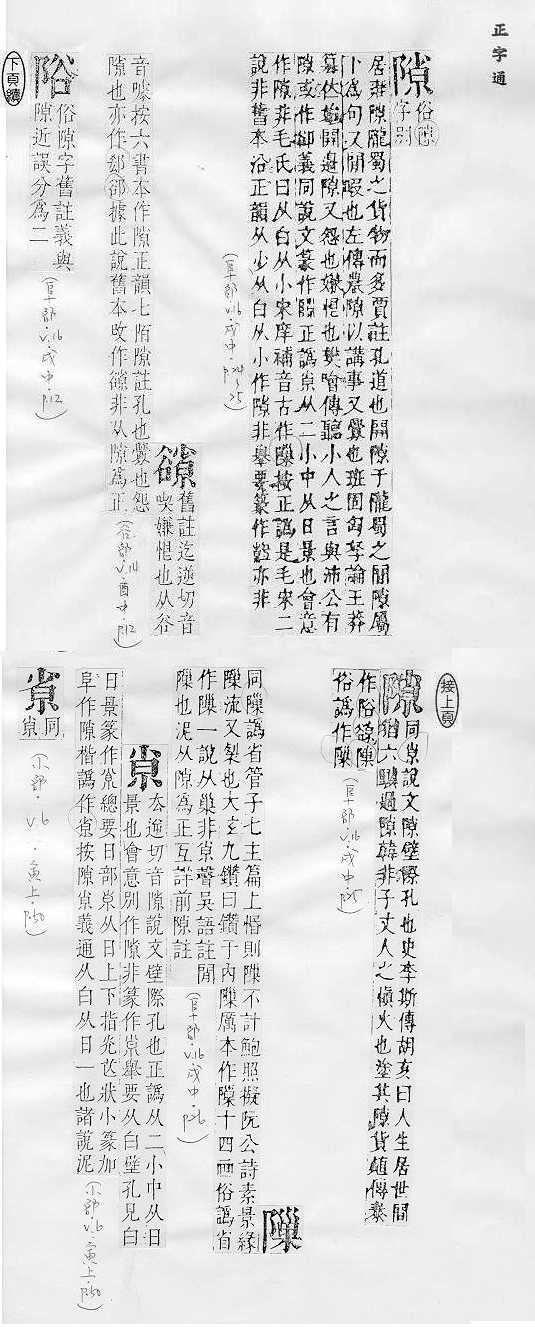 正字通
隙
俗隙
字別
居雍隙隴蜀之貨物而多賈註孔道也開隙于隴蜀之間隙屬
卜爲句又閒暇也左傳農隙以講事又釁也班固匈奴論王莽
篡伏始開邊隙又怨也嫌恨也樊噲傳聽小人之言與沛公有
隙或作郤義同說文篆作隙正譌𡭴从二小中从日景也會意
作隙非毛氏曰从白从小宋庠補音古作隟按正譌是毛宋二
說非舊本沿正韻从少从白从小作隙非舉要篆作亦非
(阜部.v.16.戌中.p.24~25)
舊註迄逆切音
喫嫌恨也从谷
音喫按六書本作隙正韻七陌隙註孔也釁也怨
隙也亦作郄郤據此說舊本改作非从隙爲正
(谷部.v.14.酉中.p.12)
俗隙字舊註義與
隙近誤分爲二
(阜部.v.16.戌中.p.12)
下頁續
接上頁
隙
同𡭴說文隙壁際孔也史李斯傳胡亥曰人生居世間
猶六驥過隙韓非子丈人之愼火也塗其隙貨殖傳秦
作俗隟
俗譌作隟
(阜部.v.16.戌中.p.25)
隟
同隟譌省管子七主篇上惛則隟不計鮑照擬阮公詩素景緣
隟流又裂也大玄九鑽曰鑽于內隟厲本作隟十四畫俗譌省
作隟一說从巢非𡭴聲吳語註閒
隟也泥从隙爲正互詳前隙註
(阜部.v.16.戌中.p.26)
𡭴
夲逆切音隙說文壁際孔也正譌从二小中从日
景也會意別作隙非篆作𡭴舉要从白壁孔見白
日景篆作𡭴總要日部𡭴从日上下指光芒狀小篆加
阜作隙楷譌作𡮂按隙𡭴義通从白从日一也諸說泥
(小部.v.6.寅上.p.50)
𡮂
同
𡭴
(小部.v.6.寅上.p.50)